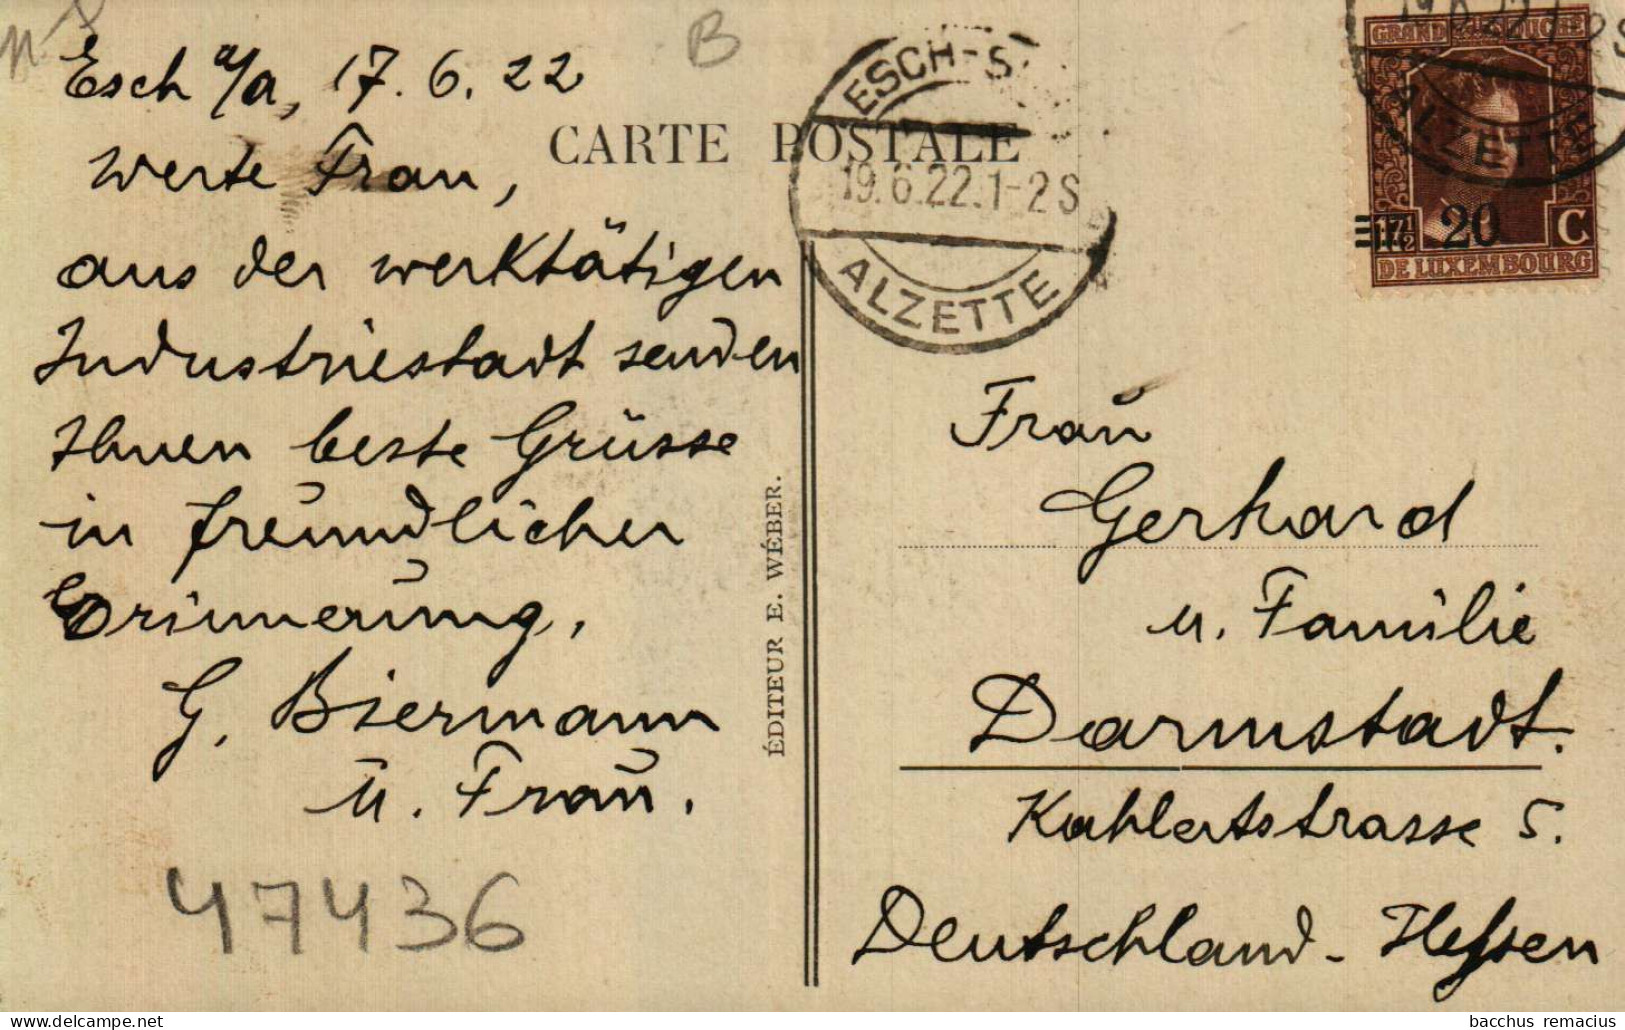 Esch a/a, 17. 6. 22
B
CARTE POSTALE
Werte Frau,
aus der werktätigen
Industriestadt senden
Ihnen beste Grüsse
in freundlicher
Erinnerung,
G. Biermann
u. Frau.
47436
ÉDITEUR E. WÉBER.
ESCH-S.
19.6.22.1-2S
ALZETTE
19.6.22.1-2S
ALZETTE
GRAND DUCHÉ
17½ 20 C
DE LUXEMBOURG
Frau
Gerhard
u. Familie
Darmstadt.
Kahlertstrasse 5.
Deutschland - Hessen
bacchus remacius